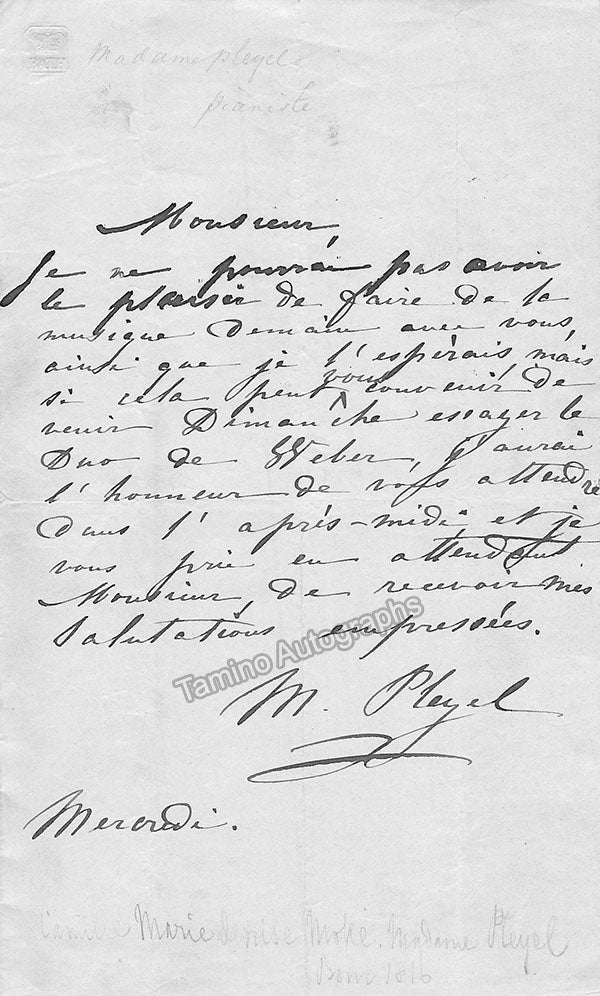 BATH
Madame pleyel
pianiste
Monsieur,
Je ne pourrai pas avoir
le plaisir de faire de la
musique Demain avec vous,
ainsi que je l'espérais, mais
si cela peut vous convenir de
venir Dimanche essayer le
Duo de Weber, j'aurai
l'honneur de vous attendre
dans l'après-midi et je
vous prie en attendant
Monsieur, de recevoir mes
Salutations empressées.
Tamino Autographs
M. Pleyel
Mercredi.
Camille Marie Denise Moke. Madame Pleyel
Born 1816